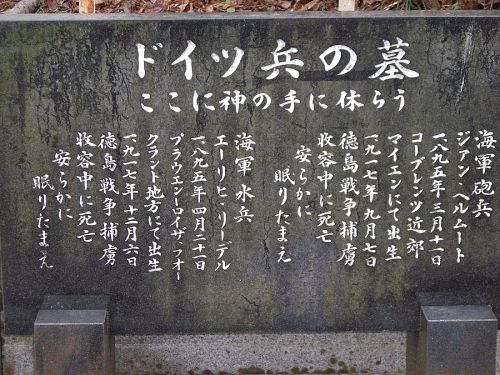 ドイツ兵の墓
ここに神の手に休らう
海軍砲兵
ジアン・ヘルムート
一八九五年三月十一日
コーブレンツ近郊
マイエンにて出生
一九一七年九月七日
徳島戦争捕虜
收容中に死亡
安らかに
眠りたまえ
海軍水兵
エーリヒ・リーデル
一八九五年四月二十一日
プラウエン・ロイザ、フオー
クラント地方にて出生
一九一七年十二月六日
徳島戦争捕虜
收容中に死亡
安らかに
眠りたまえ